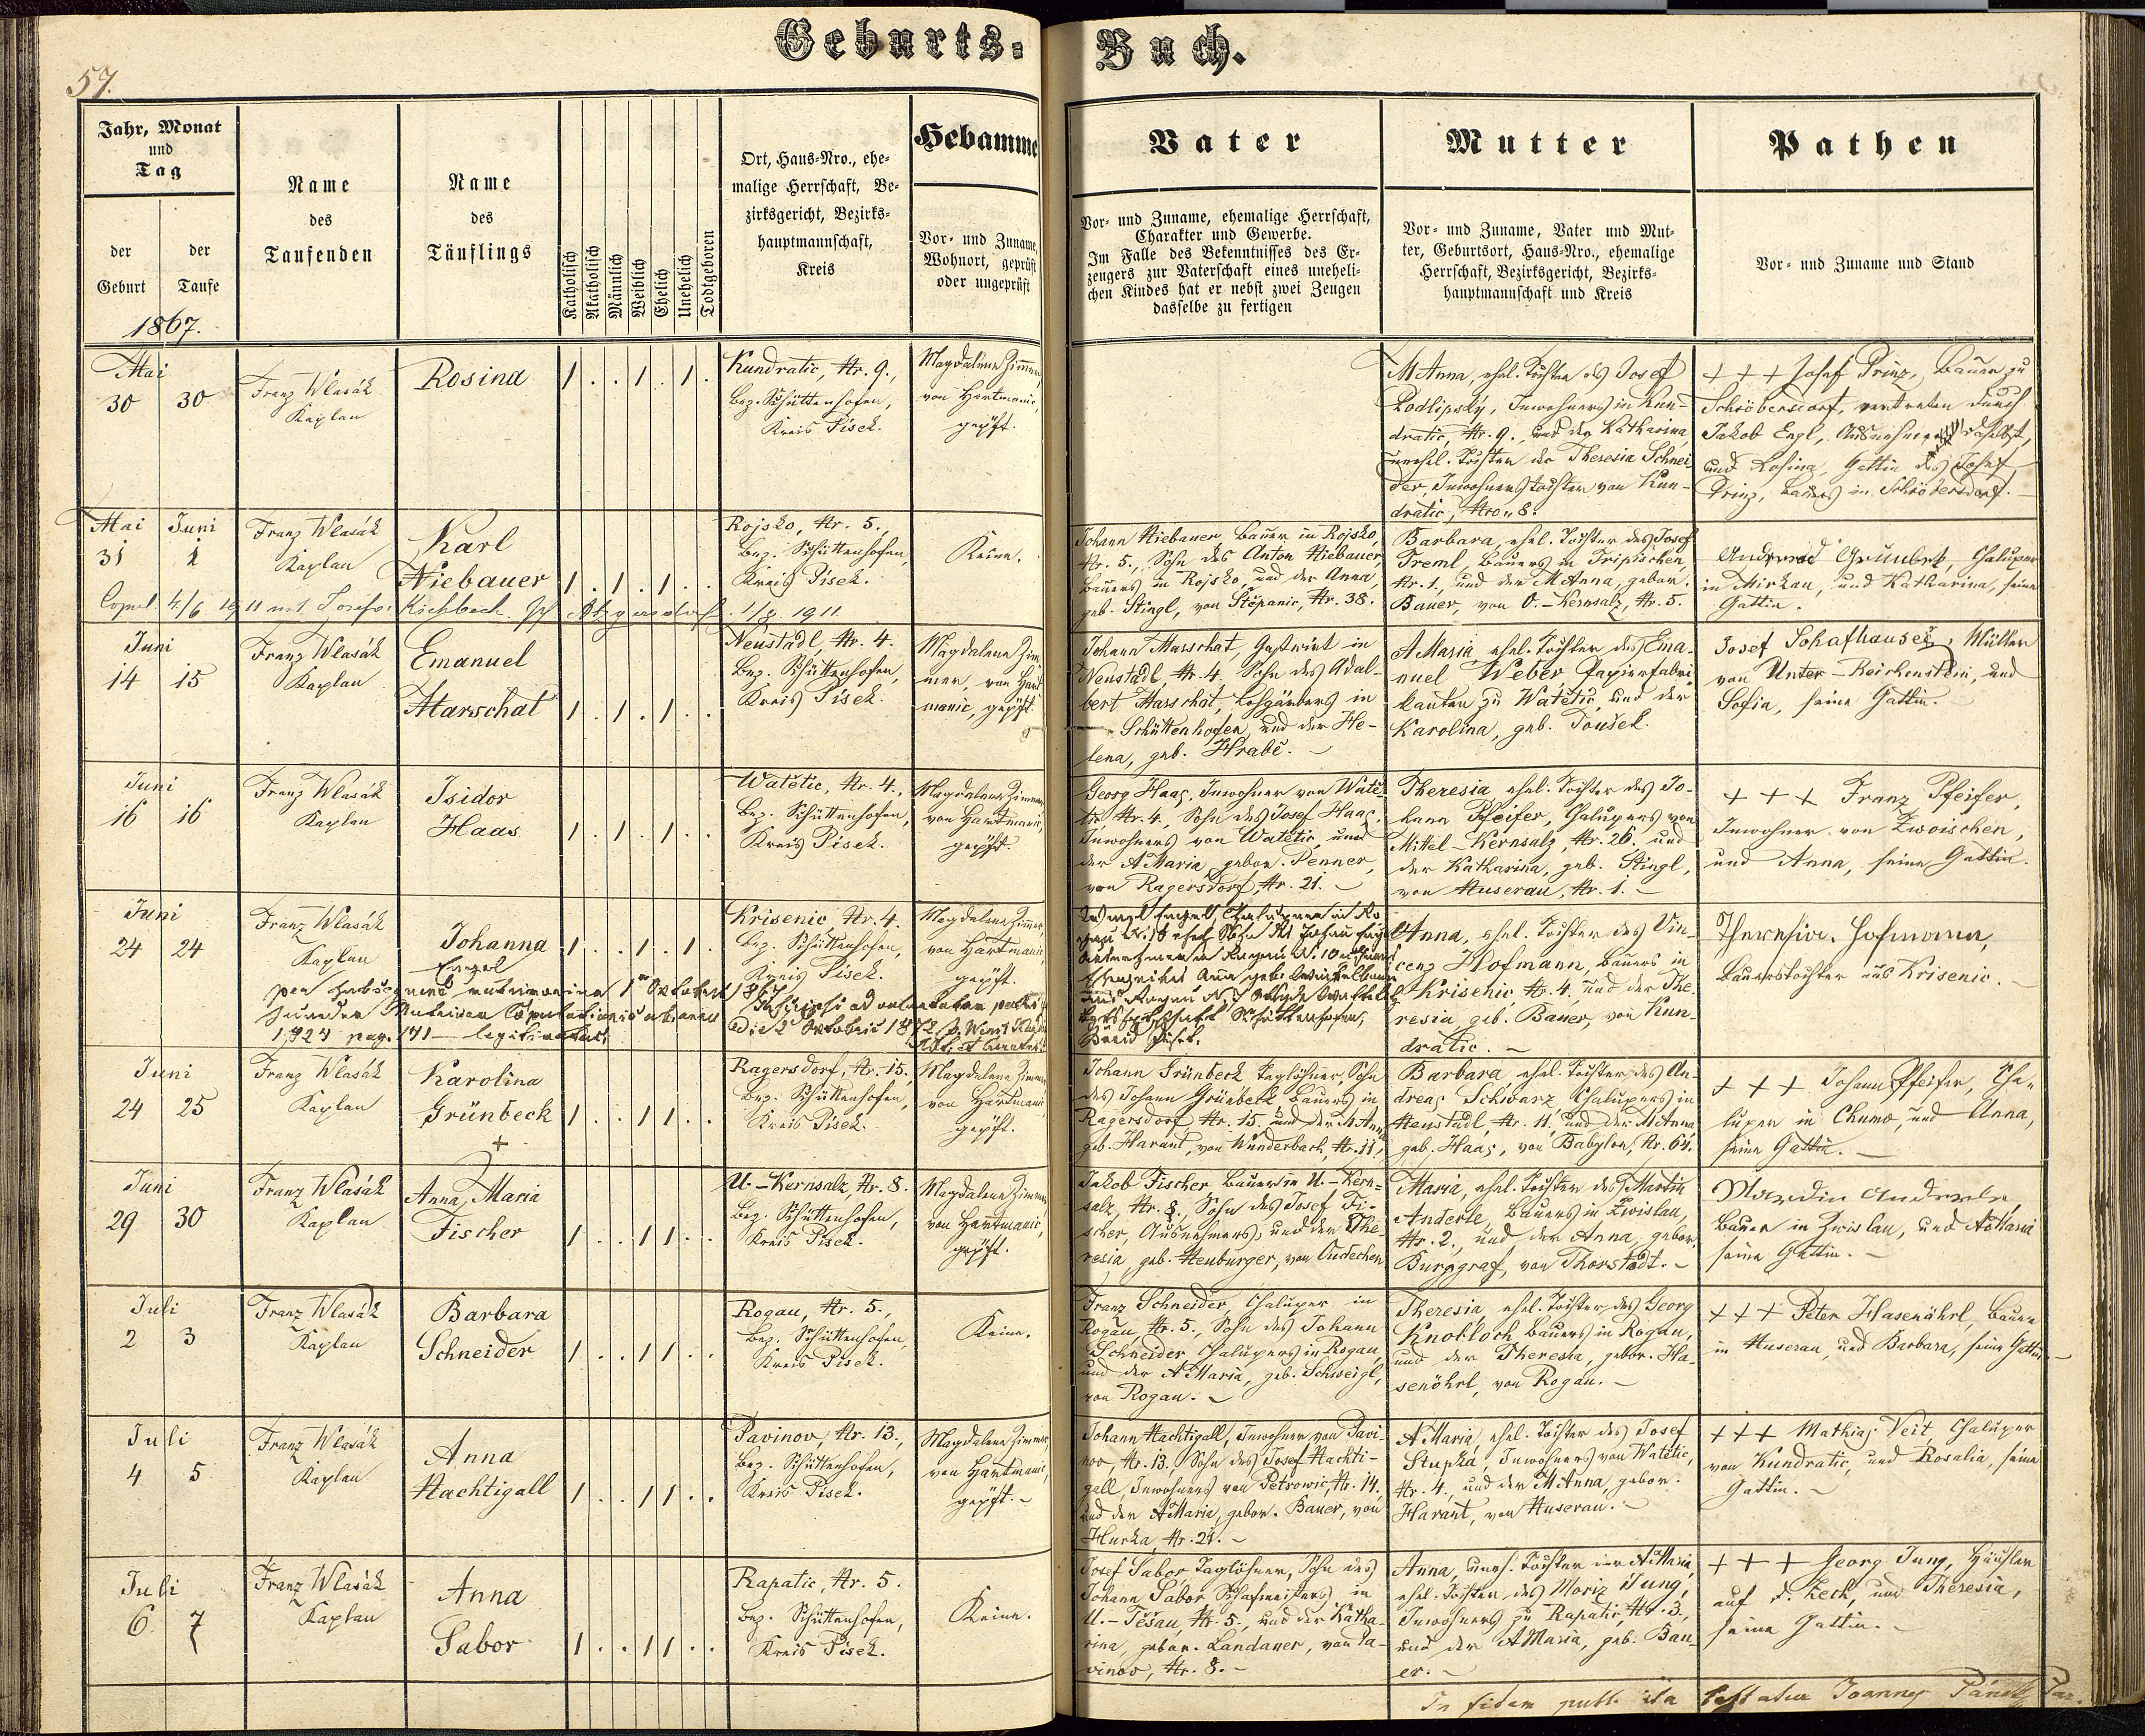 Geburts-Buch.
57.
Jahr, Monat
und
Tag
der
Geburt
der
Taufe
1867.
Name
des
Taufenden
Name
des
Täuflings
Katholisch
Akatholisch
Männlich
Weiblich
Ehelich
Unehelich
Todtgeboren
Ort, Haus-Nro., ehe-
malige Herrschaft, Be-
zirksgericht, Bezirks-
hauptmannschaft,
Kreis
Hebamme
Vor- und Zuname,
Wohnort, geprüft
oder ungeprüft
Vater
Vor- und Zuname, ehemalige Herrschaft,
Charakter und Gewerbe.
Im Falle des Bekenntnisses des Er-
zeugers zur Vaterschaft eines uneheli-
chen Kindes hat er nebst zwei Zeugen
dasselbe zu fertigen
Mutter
Vor- und Zuname, Vater und Mut-
ter, Geburtsort, Haus-Nro., ehemalige
Herrschaft, Bezirksgericht, Bezirks-
hauptmannschaft und Kreis
Pathen
Vor- und Zuname und Stand
Mai
30 30
Franz Wlasák
Kaplan
Rosina
1 . . 1 . 1 .
Kundratic, Nr. 9.,
Bez. Schüttenhofen,
Kreis Pisek.
Magdalena Zimmer,
von Hartmanic
gepft.
M Anna, ehel. Tochter des Josef
Podlipský, Inwohners in Kun-
dratic, Nr. 9., und der Katharina,
unehel. Tochter der Theresia Schnei
der, Inwohnerstochter von Kun-
dratic, Nro. 8.
+ + + Josef Prinz, Bauer zu
Schröbersdorf, vertreten durch
Jakob Engl, Ausnehmer daselbst,
und Rosina, Gattin des Josef
Prinz, Bauers in Schröbersdorf.
Mai Juni
31 1
Franz Wlasák
Kaplan
Karl
Niebauer
1 . 1 . 1 . .
Rojsko, Nr. 5.,
Bez. Schüttenhofen,
Kreis Pisek.
Keine.
Johann Niebauer, Bauer in Rojsko,
Nr. 5., Sohn des Anton Niebauer,
Bauers in Rojsko, und der Anna,
geb. Stingl, von Štěpanic, Nr. 38.
Barbara, ehel. Tochter des Josef
Treml, Bauers in Tripischen,
Nr. 1, und der M Anna, gebor.
Bauer, von O.-Kernsalz, Nr. 5.
Grünbek, Chalupner
in Mirkau, und Katharina, seine
Gattin.
Copul. 4/6 1911 mit Josefa 11/8 1911
Juni
14 15
Franz Wlasák
Kaplan
Emanuel
Marschat
1 . 1 . 1 . .
Neustadl, Nr. 4.
Bez. Schüttenhofen,
Kreis Pisek.
Magdalena Zim-
mer, von Hart-
manic, gepft.
Johann Marschat, Gastwirt in
Neustadl, Nr. 4. Sohn des Adal-
bert Marschat, Lohgärbers in
Schüttenhofen, und der He-
lena, geb. Hrabě.
A Maria ehel. Tochter des Ema-
nuel Weber Papierfabri-
kanten zu Watětic, und der
Karolina, geb. Toušek.
Josef Schafhauser, Müller
von Unter-Reichenstein, und
Sofia, seine Gattin.
Juni
16 16
Franz Wlasák
Kaplan
Isidor
Haas
1 . 1 . 1 . .
Watětic, Nr. 4.,
Bez. Schüttenhofen,
Kreis Pisek.
Magdalena Zimmer
von Hartmanic,
gepft.
Georg Haas, Inwohner von Watě-
tic Nr. 4., Sohn des Josef Haas,
Inwohners von Watětic, und
der A Maria, gebor. Penner,
von Ragersdorf, Nr. 21.
Theresia ehel. Tochter des Jo-
hann Pfeifer, Chalupers von
Mittel-Kernsalz, Nr. 26. und
der Katharina, geb. Stingl,
von Nuserau, Nr. 1.
+ + + Franz Pfeifer,
Inwohner von Zwoischen,
und Anna, seine Gattin.
Juni
24 24
Franz Wlasák
Kaplan
Johanna
Engel
1 . . 1 . 1 .
Krisenic Nr. 4.
Bez. Schüttenhofen,
Kreis Pisek.
Magdalena Zimmer,
von Hartmanic,
gepft.
Anna, ehel. Tochter des Vin-
cenz Hofmann, Bauers in
Krisenic, Nr. 4. und der The-
resia geb. Bauer, von Kun-
dratic.
Theresia Hofmann,
Bauerstochter aus Krisenic.
Juni
24 25
Franz Wlasák
Kaplan
Karolina
Grünbeck
+
1 . . 1 1 . .
Ragersdorf, Nr. 15.,
Bez. Schüttenhofen,
Kreis Pisek.
Magdalena Zimmer
von Hartmanic
gepft.
Johann Grünbeck Taglöhner, Sohn
des Johann Grünbeck Bauers in
Ragersdorf, Nr. 15. und der M Anna
geb. Harant, von Wunderbach, Nr. 11,
Barbara ehel. Tochter des An-
dreas Schwarz Chalupers in
Neustadl, Nr. 11, und der M Anna
geb. Haas, von Babylon, Nr. 61.
+ + + Johann Pfeifer, Cha-
luper in Chumo, und Anna,
seine Gattin.
Juni
29 30
Franz Wlasák
Kaplan
Anna, Maria
Fischer
1 . . 1 1 . .
U.-Kernsalz, Nr. 8.
Bez. Schüttenhofen,
Kreis Pisek.
Magdalena Zimmer
von Hartmanic,
gepft.
Jakob Fischer Bauer in U.-Kern-
salz, Nr. 8., Sohn des Josef Fi-
scher, Ausnehmers, und der The-
resia, geb. Neuburger, von Dudechen
Maria, ehel. Tochter des Martin
Anderle, Bauers in Zwislau,
Nr. 2., und der Anna, gebor.
Burggraf, von Thorstadt.
Martin Anderle
Bauer in Zwislau, und A Maria
seine Gattin.
Juli
2 3
Franz Wlasák
Kaplan
Barbara
Schneider
1 . . 1 1 . .
Rogau, Nr. 5.,
Bez. Schüttenhofen,
Kreis Pisek.
Keine.
Franz Schneider, Chaluper in
Rogau, Nr. 5., Sohn des Johann
Schneider Chalupers in Rogau,
und der A Maria, geb. Schweigl,
von Rogau.
Theresia, ehel. Tochter des Georg
Knobloch Bauers in Rogau,
und der Theresia, gebor. Ha-
senöhrl, von Rogau.
+ + + Peter Hasenöhrl, Bauer
in Nuserau, und Barbara, seine Gattin.
Juli
4 5
Franz Wlasák
Kaplan
Anna
Nachtigall
1 . . 1 1 . .
Pavinov, Nr. 13.,
Bez. Schüttenhofen,
Kreis Pisek.
Magdalena Zimmer,
von Hartmanic,
gepft.
Johann Nachtigall, Inwohner von Pavi-
nov, Nr. 13., Sohn des Josef Nachti-
gall, Inwohners von Petrowic, Nr. 14.
und der A Maria, gebor. Bauer, von
Hurka, Nr. 21.
A Maria, ehel. Tochter des Josef
Stupka, Inwohners von Watětic,
Nr. 4., und der M Anna, gebor.
Harant, von Nuserau.
+ + + Mathias Veit, Chaluper
von Kundratic, und Rosalia, seine
Gattin.
Juli
6 7
Franz Wlasák
Kaplan
Anna
Sabor
1 . . 1 1 . .
Rapatic, Nr. 5.
Bez. Schüttenhofen,
Kreis Pisek.
Keine.
Josef Sabor Taglöhner, Sohn des
Johann Sabor Schafmeisters in
U.-Těšau, Nr. 5., und der Katha-
rina, gebor. Landauer, von Pa-
vinov, Nr. 8.
Anna, uneh. Tochter der A Maria,
ehel. Tochter des Moriz Jung,
Inwohners zu Rapatic, Nr. 3.,
und der A Maria, geb. Bau-
er.
+ + + Georg Jung, Häusler
auf d. Zech, und Theresia,
seine Gattin.
In fidem publ. ita testatur Joannes